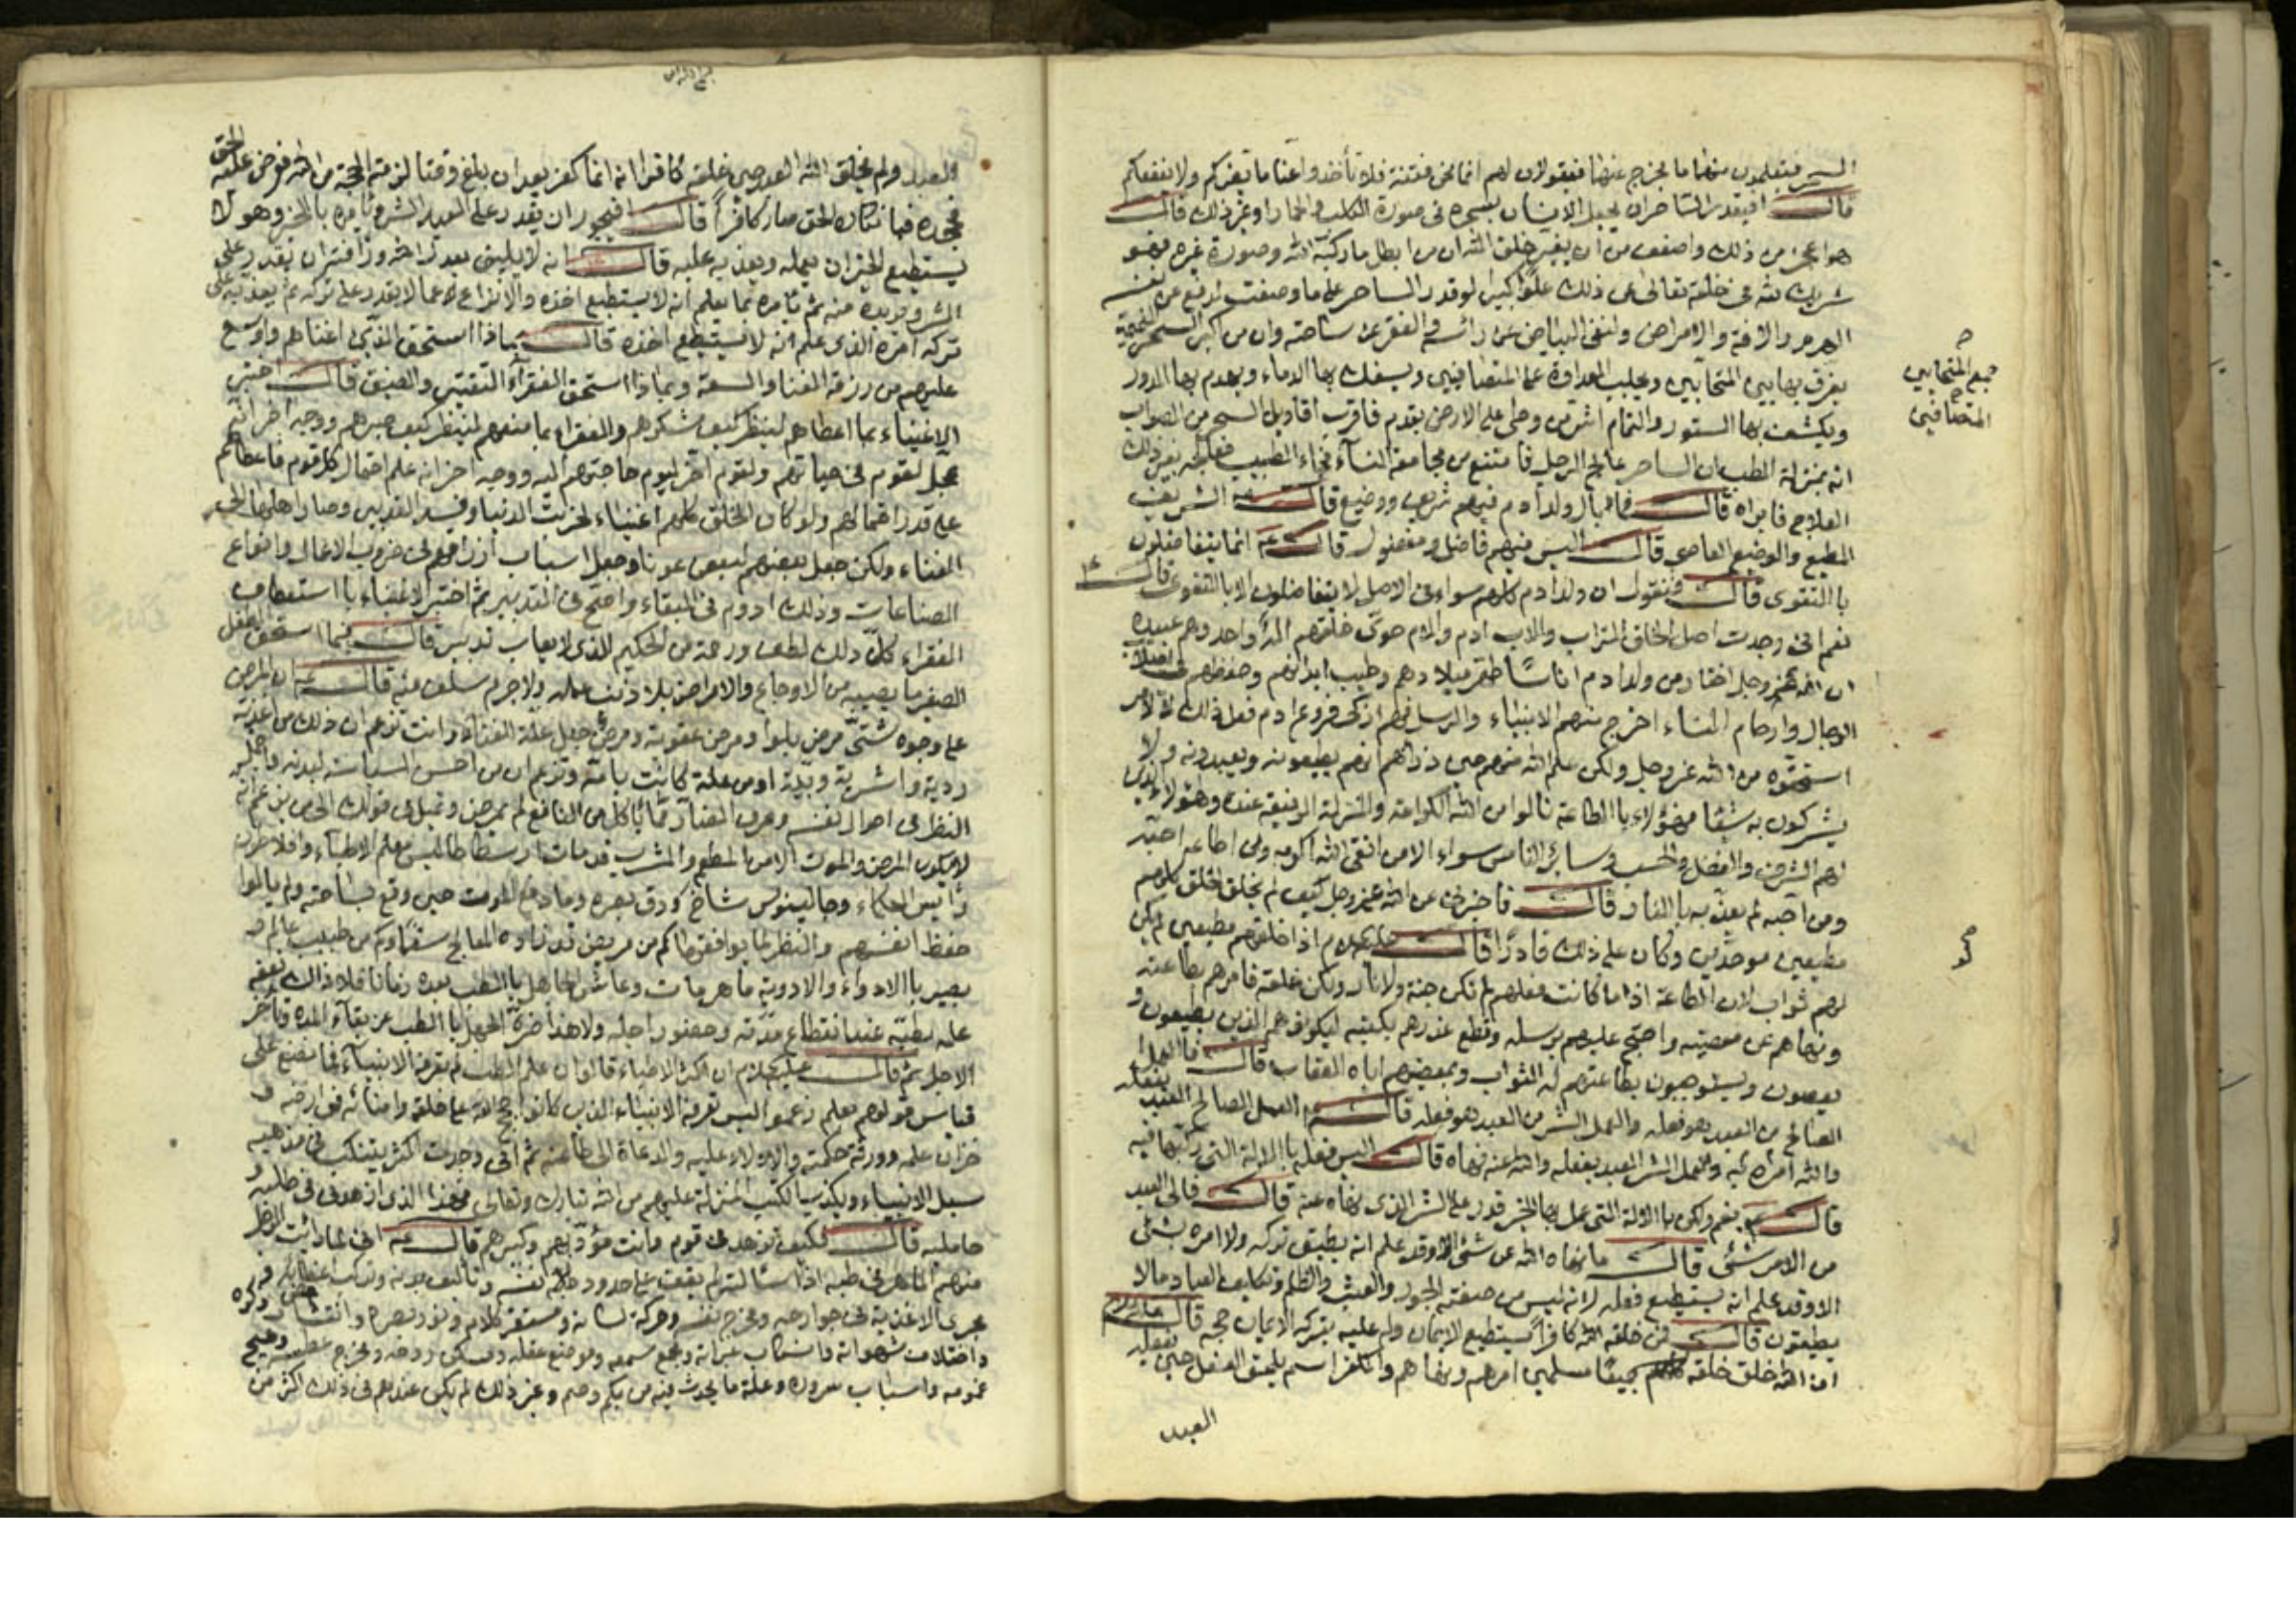 السحر فيتعلمون منهما ما يخرج عنهما فيقولان لهم انما نحن فتنة فلا تأخذوا عنا ما يضركم ولا ينفعكم
قال افيقدر الساحر ان يجعل الانسان بسحره في صورة الكلب والحمار او غير ذلك قال
هو اعجز من ذلك واضعف من ان يغير خلق الله ان من ابطل ما ركبه الله وصورة غيره فهو
شريك لله في خلقه تعالى عن ذلك علوا كبيرا لو قدر الساحر على ما وصفت لدفع عن نفسه
الهرم والافة والامراض ولنفى البياض عن رأسه والفقر عن ساحته وان من اكبر السحر النميمة
يفرق بها بين المتحابين ويجلب العداوة على المتصافيين ويسفك بها الدماء ويهدم بها الدور
ويكشف بها الستور والنمام اشر من وطئ على الارض بقدم فاقرب اقاويل السحر من الصواب
انه بمنزلة الطب ان الساحر عالج الرجل فامتنع من مجامعة النساء فجاء الطبيب فعالجه بغير ذلك
العلاج فابراه قال فما بال ولد ادم فيهم شريف ووضيع قال الشريف
المطيع والوضيع العاصي قال اليس فيهم فاضل ومفضول قال انما يتفاضلون
بالتقوى قال فتقول ان ولد ادم كلهم سواء في الاصل لا يتفاضلون الا بالتقوى قال
نعم اني وجدت اصل الخلق التراب والاب ادم والام حوى خلقهم اله واحد وهم عبيده
ان الله عز وجل اختار من ولد ادم اناسا طهر ميلادهم وطيب ابدانهم وحفظهم في اصلاب
الرجال وارحام النساء اخرج منهم الانبياء والرسل فهم ازكى فروع ادم فعل ذلك لا لامر
استحقوه من الله عز وجل ولكن علم الله منهم حين ذرأهم انهم يطيعونه ويعبدونه ولا
يشركون به شيئا فهؤلاء بالطاعة نالوا من الله الكرامة والمنزلة الرفيعة عنده وهؤلاء الذين
لهم الشرف والفضل والحسب وسائر الناس سواء الا من اتقى الله اكرمه ومن اطاعه احبه
ومن احبه لم يعذبه بالنار قال فاخبرني عن الله عز وجل كيف لم يخلق الخلق كلهم
مطيعين موحدين وكان على ذلك قادرا قال عليه السلام اذا خلقهم مطيعين لم يكن
لهم ثواب لان الطاعة اذا ما كانت فعلهم لم تكن جنة ولا نار ولكن خلقه فامرهم بطاعته
ونهاهم عن معصيته واحتج عليهم برسله وقطع عذرهم بكتبه ليكونوا هم الذين يطيعون و
يعصون ويستوجبون بطاعتهم له الثواب وبمعصيتهم اياه العقاب قال فالعمل
الصالح من العبد هو فعله والعمل الشر من العبد هو فعله قال العمل الصالح العبد يفعله
والله امره به والعمل الشر العبد يفعله والله عنه نهاه قال اليس فعله بالالة التي ركبها فيه
قال نعم ولكن بالالة التي عمل بها الخير قدر على الشر الذي نهاه عنه قال فالى العبد
من الامر شئ قال ما نهاه الله عن شئ الا وقد علم انه يطيق تركه ولا امره بشئ
الا وقد علم انه يستطيع فعله لانه ليس من صفته الجور والعبث والظلم وتكليف العباد ما لا
يطيقون قال فمن خلقه الله كافرا يستطيع الايمان وله عليه بتركه الايمان حجه قال
ان الله خلق خلقه جميعا مسلمين امرهم ونهاهم والكفر اسم يلحق الفعل حين يفعله
العبد
المتحابين
المتصافيين
العبد ولم يخلق الله العبد حين خلقه كافرا انه انما كفر بعد ان بلغ وقتا لزمته الحجة من الله فعرض عليه الحق
فجحده فبانكاره الحق صار كافرا قال فيجوز ان يقدر على العبد الشر ويأمره بالخير وهو لا
يستطيع الخير ان يعمله ويعذبه عليه قال انه لا يليق بعدل الله ورأفته ان يقدر على
الشر ويريده منه ثم يأمره بما يعلم انه لا يستطيع اخذه والانزاع عما لا يقدر على تركه ثم يعذبه على
تركه امره الذي علم انه لا يستطيع اخذه قال بماذا استحق الذين اغناهم واوسع
عليهم من رزقه الغنا والسعة وبماذا استحق الفقراء التقتير والضيق قال اختبر
الاغنياء بما اعطاهم لينظر كيف شكرهم والفقراء بما منعهم لينظر كيف صبرهم ووجه اخر انه
عجل لقوم في حياتهم ولقوم اخر ليوم حاجتهم اليه ووجه اخر انه علم احتمال كل قوم فاعطاهم
على قدر احتمالهم ولو كان الخلق كلهم اغنياء لخربت الدنيا وفسد التدبير وصار اهلها الى
الفناء ولكن جعل بعضهم لبعض عونا وجعل اسباب ارزاقهم في ضروب الاعمال وانواع
الصناعات وذلك ادوم في البقاء واصح في التدبير ثم اختبر الاغنياء بالاستعطاف
الفقراء كل ذلك لطف ورحمة من الحكيم الذي لا يعاب تدبيره قال فبما استحق الطفل
الصغير ما يصيبه من الاوجاع والامراض بلا ذنب عمله ولا جرم سلف منه قال ان المرض
على وجوه شتى مرض بلوا ومرض عقوبة ومرض جعل علة الفناء وانت تزعم ان ذلك من اغذية
ردية واشربة وبيئة او من علة كانت بامه وتزعم ان من احسن السياسة لبدنه واجمل
النظر في احوال نفسه وعرف الضار مما يأكل من النافع لم يمرض وتميل في قولك الى من يزعم انه
لا يكون المرض والموت الا من المطعم والمشرب قد مات ارسطاطاليس معلم الاطباء وافلاطون
رئيس الحكماء وجالينوس شاخ ودق بصره وما دفع الموت حين وقع بساحته ولم يالوا
حفظ انفسهم والنظر لما يوافقها كم من مريض قد زاده المعالج سقما وكم من طبيب عالم و
بصير بالادواء والادوية ماهر مات وعاش الجاهل بالطب بعده زمانا فلا ذاك نفعه
علمه بطبه عند انقطاع مدته وحضور اجله ولا هذا ضره الجهل بالطب مع بقاء المدة وتأخر
الاجل ثم قال عليه السلام ان اكثر الاطباء قالوا ان علم الطب لم تعرفه الانبياء فما نصنع على
قياس قولهم بعلم زعموا ليس تعرفه الانبياء الذين كانوا حجج الله على خلقه وامنائه في ارضه و
خزان علمه وورثة حكمته والادلاء عليه والدعاة الى طاعته ثم اني وجدت اكثر يتنكب في مذهبه
سبل الانبياء ويكذب الكتب المنزلة عليهم من الله تبارك وتعالى فهذا الذي ازهدني في طلبه و
حامليه قال فكيف تزهد في قوم وانت مؤدبهم وكبيرهم قال اني لما رأيت الرجل
منهم الماهر في طبه اذا سألته لم يقف على حدود نفسه وتأليف بدنه وتركيب اعضائه و
مجرى الاغذية في جوارحه ومخرج نفسه وحركة لسانه ومستقر كلامه ونور بصره وانتشار ذكره
واختلاف شهواته وانسكاب عبراته ومجمع سمعه وموضع عقله ومسكن روحه ومخرج عطسه وهيج
غمومه واسباب سروره وعلة ما يحدث فيه من بكم وصم وغير ذلك لم يكن عندهم في ذلك اكثر من